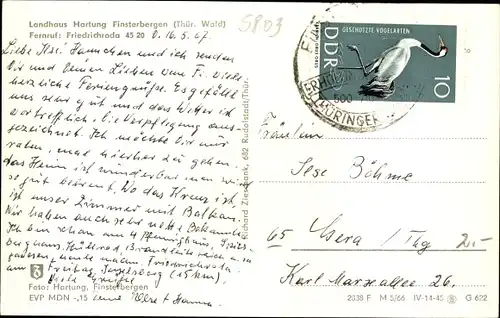 Landhaus Hartung Finsterbergen (Thür. Wald)
Fernruf: Friedrichroda 45 20 d. 16. 5. 67
5803
Liebe Ilse! Hannchen und ich senden
dir und deinen Lieben vom F. viele
herzliche Feriengrüße. Es gefällt
uns sehr gut und das Wetter ist
vortrefflich. Die Verpflegung aus-
gezeichnet. Ich möchte dir nur
raten, mal hierher zu gehen.
das Heim ist wunderbar man wird
so gut betreut. Wo das Kreuz ist,
ist unser Zimmer mit Balkon.
Wir haben auch sehr nette Bekannte.
Ich bin schon am
gegangen, heute Friedrichroda
am Freitag Inselsberg (15 km)
Viele Grüße
Foto: Hartung, Finsterbergen
EVP MDN -,15 Hanna
Richard Zieschank, 682 Rudolstadt/Thür.
GESCHÜTZTE VOGELARTEN
DDR
10
500
THÜRINGEN
Fräulein
Ilse Böhme
65 Gera / Thg 2.-
Karl Marxallee 26.
2338 F M 5/66 IV-14-45 G 622